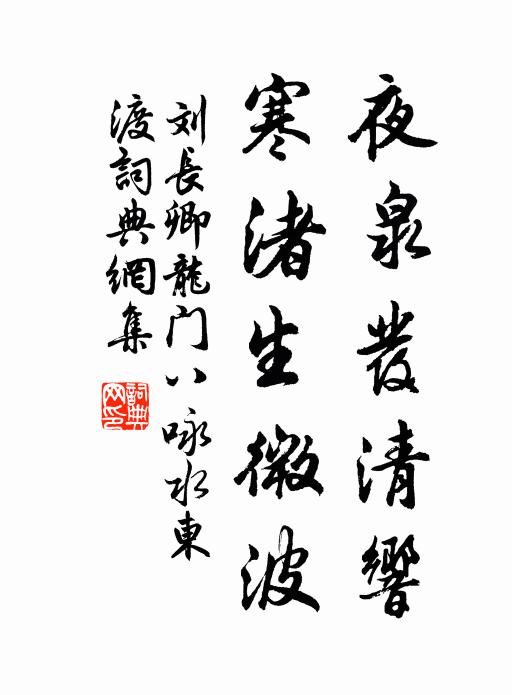 夜泉發清響
寒渚生微波
刘長卿龍门八咏水東
渡詞典網集
詞典
网印